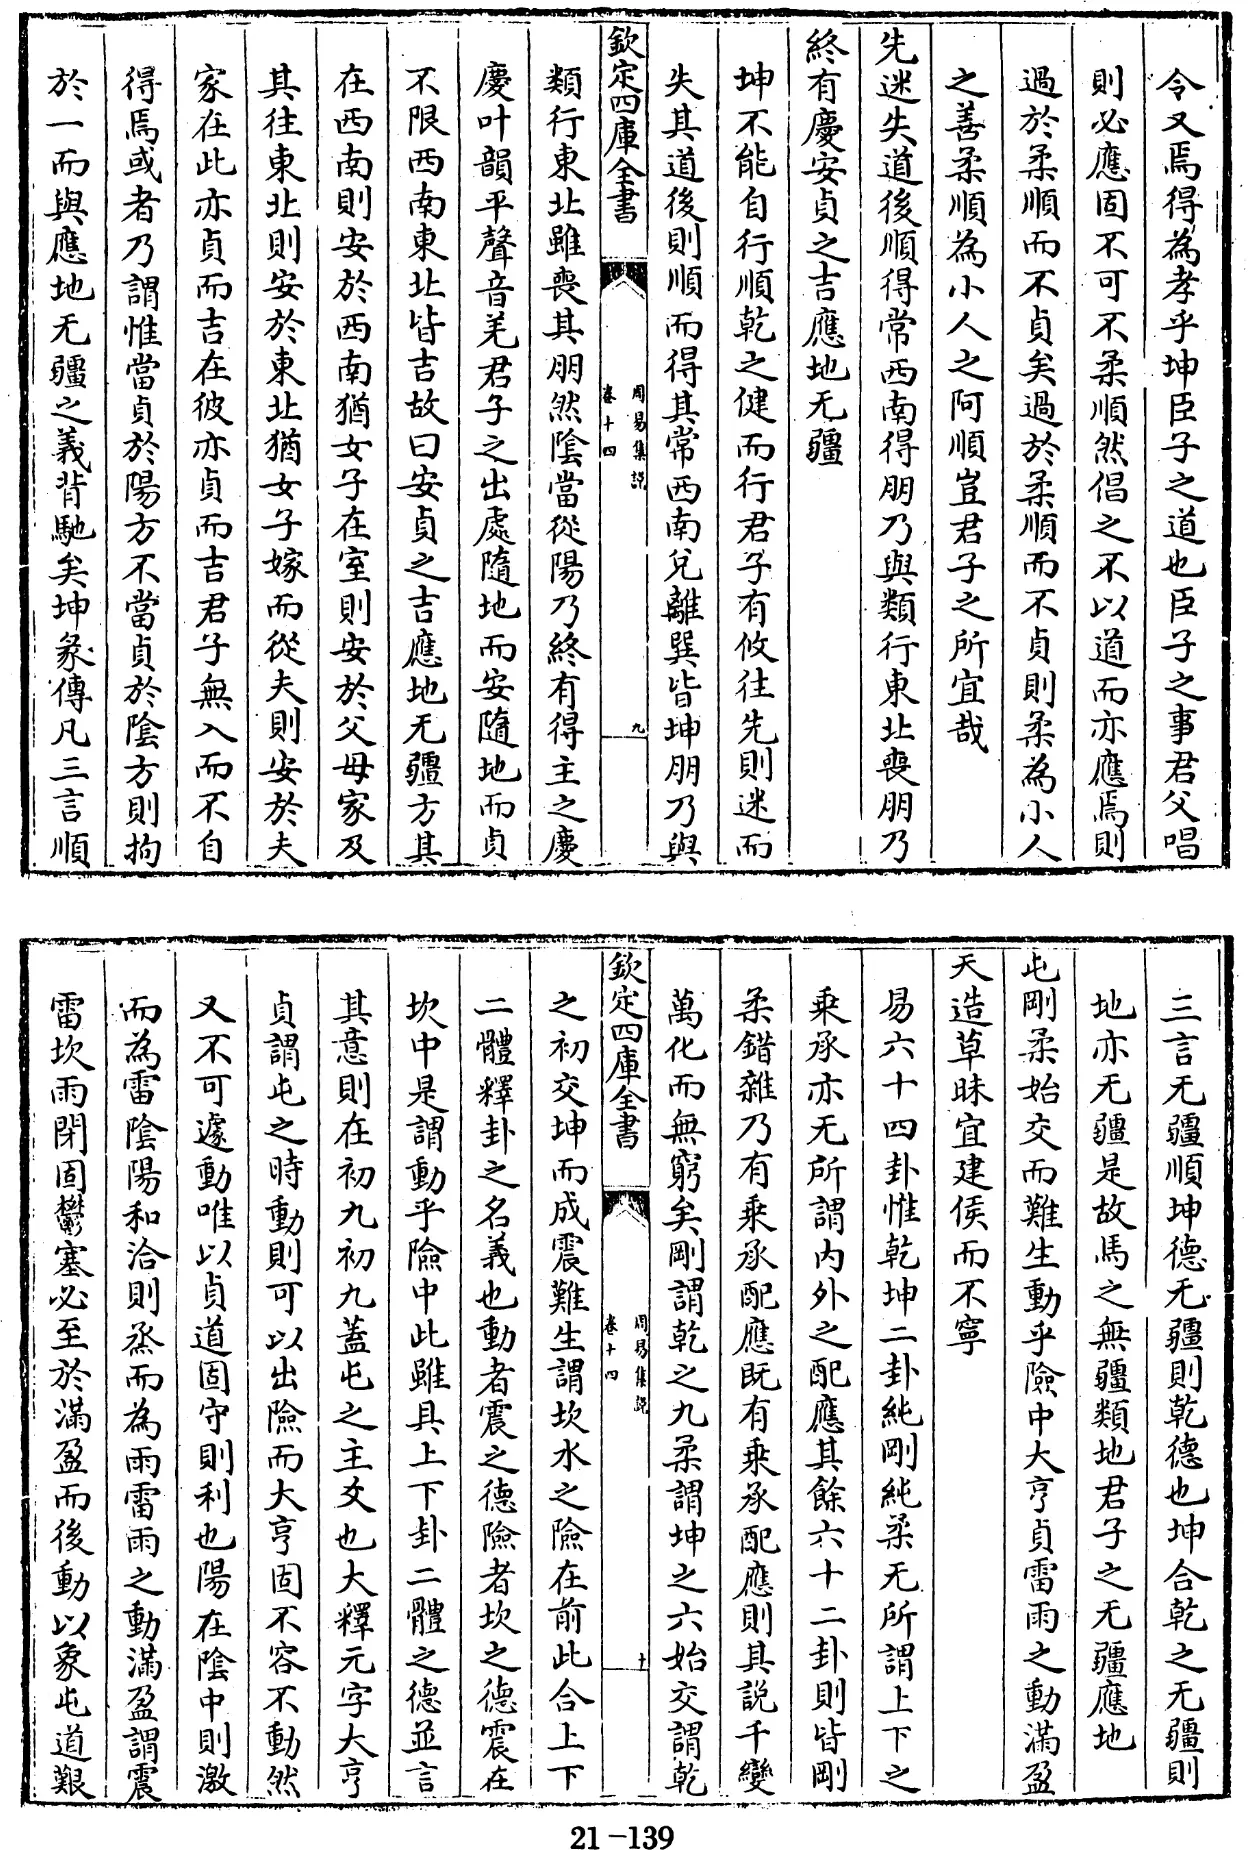 令又焉得為孝乎坤臣子之道也臣子之事君父唱
則必應固不可不柔順然倡之不以道而亦應焉則
過於柔順而不貞矣過於柔順而不貞則柔為小人
之善柔順為小人之阿順豈君子之所宜哉
先迷失道後順得常西南得朋乃與類行東北喪朋乃
終有慶安貞之吉應地无疆
坤不能自行順乾之健而行君子有攸往先則迷而
失其道後則順而得其常西南兌離巽皆坤朋乃與
欽定四庫全書
周易集説
卷十四
九
類行東北雖喪其朋然陰當從陽乃終有得主之慶
慶叶韻平聲音羌君子之出處隨地而安隨地而貞
不限西南東北皆吉故曰安貞之吉應地无疆方其
在西南則安於西南猶女子在室則安於父母家及
其往東北則安於東北猶女子嫁而從夫則安於夫
家在此亦貞而吉在彼亦貞而吉君子無入而不自
得焉或者乃謂惟當貞於陽方不當貞於陰方則拘
於一而與應地无疆之義背馳矣坤彖傳凡三言順
三言无疆順坤德无疆則乾德也坤合乾之无疆則
地亦无疆是故馬之無疆類地君子之无疆應地
屯剛柔始交而難生動乎險中大亨貞雷雨之動滿盈
天造草昧宜建侯而不寧
易六十四卦惟乾坤二卦純剛純柔无所謂上下之
乘承亦无所謂内外之配應其餘六十二卦則皆剛
柔錯雜乃有乘承配應既有乘承配應則其說千變
萬化而無窮矣剛謂乾之九柔謂坤之六始交謂乾
欽定四庫全書
周易集説
卷十四
十
之初交坤而成震難生謂坎水之險在前此合上下
二體釋卦之名義也動者震之德險者坎之德震在
坎中是謂動乎險中此雖具上下卦二體之德並言
其意則在初九初九蓋屯之主爻也大釋元字大亨
貞謂屯之時動則可以出險而大亨固不容不動然
又不可遽動唯以貞道固守則利也陽在陰中則激
而為雷陰陽和洽則烝而為雨雷雨之動滿盈謂震
雷坎雨閉固鬱塞必至於滿盈而後動以象屯道艱
21-139